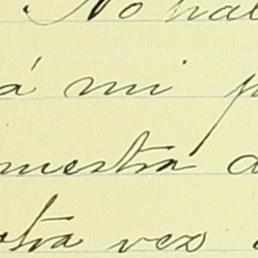 No hal
á mi p
mestra d
otra vez